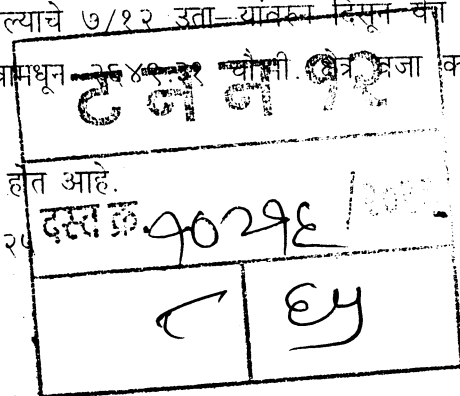 ल्याचे ७/१२ उता-यांवरुन दिसून येते
मधून २६४९.३१ चौ.मी. क्षेत्र वजा
ट न न १२
होत आहे.
दस्त क्र. १०२१६ /
२५
८ ६५